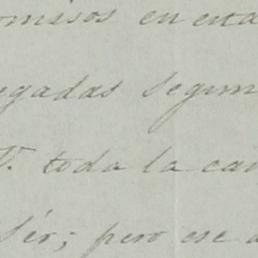 omisos en esta
egadas segun
V. toda la can
sér; pero ese a